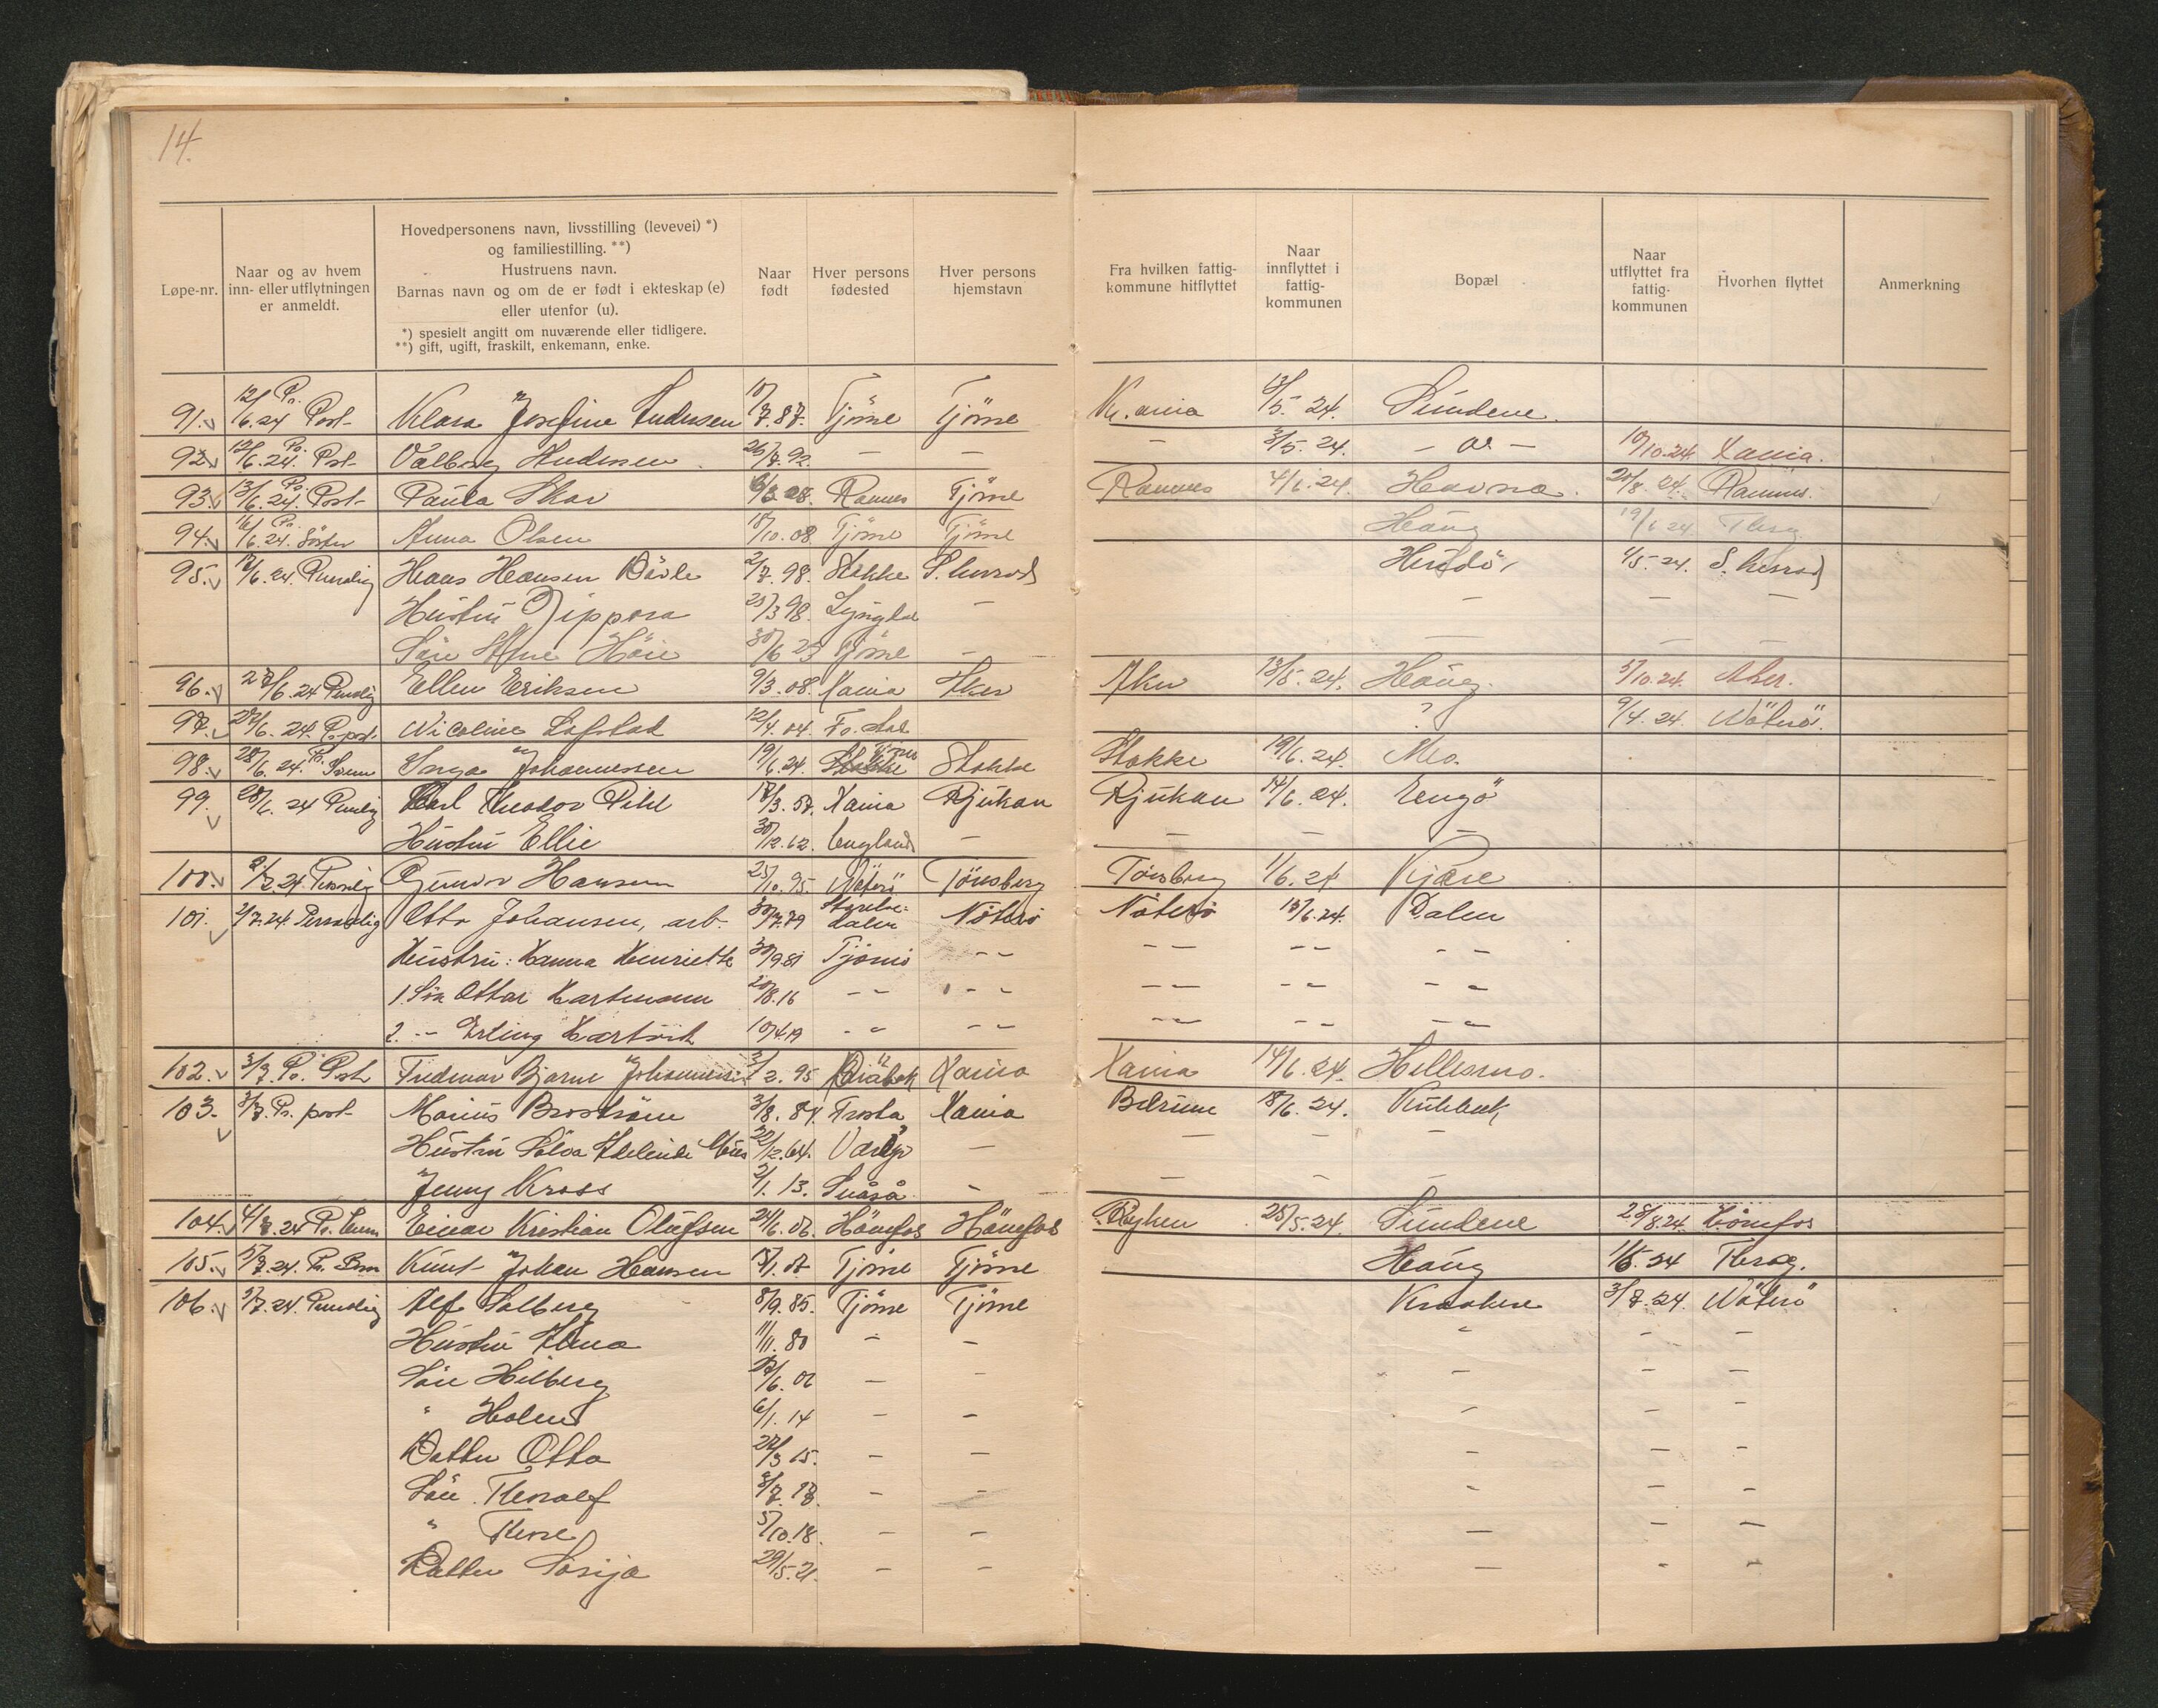 14.
Løpe-nr.
Naar og av hvem inn- eller utflytningen er anmeldt.
Hovedpersonens navn, livsstilling (levevei) *)
og familiestilling. **)
Hustruens navn.
Barnas navn og om de er født i ekteskap (e)
eller utenfor (u).
*) spesielt angitt om nuværende eller tidligere.
**) gift, ugift, fraskilt, enkemann, enke.
Naar født
Hver persons fødested
Hver persons hjemstavn
Fra hvilken fattig-kommune hitflyttet
Naar innflyttet i fattig-kommunen
Bopæl
Naar utflyttet fra fattig-kommunen
Hvorhen flyttet
Anmerkning
91. 12/6.24 Pr. Post- Klara Josefine Andersen 10/7.87. Tjöme Tjöme Kr.ania /5. 24. Sundene.
92. 12/6.24. Pr. Pst- Valborg Andersen 26/7.92. — — — 3/5.24. — " — 10/10.24 Xania.
93. 13/6.24. Pr. Post- Paula Skar 08. Ramnes Tjöme Ramnes 4/6.24. Havna. 20/8.24. Ramnes.
94. 16/6.24. Pr. Söster Anna Olsen 18/10.08 Tjöme Tjöme Haug 19/6 24 Tbrg
95. 17/6.24. Personlig Hans Hansen 2/7.98. Stokke S. herred Hvidö, 4/5.24. S. herred
Hustru Zippora 23/3 98. Lyngdal — — — —
Sön Arne 30/6 23 Tjöme — — — —
96. 27/6.24 Personlig Ellen Eriksen 9/3.08. Xania Aker Aker 13/5.24. Haug. 5/10.24. Aker.
97. 27/6.24. Pr. post. Nicoline Lofstad 12/4.04. ? 9/4.24. Nöterö.
98. 28/6.24. Pr. Inga Johannessen 19/6.24. Stokke Tjöme Stokke Stokke 19/6.24. Mo.
99. 28/6.24 Personlig Karl Theodor Pihl 17/3.57. Xania Rjukan Rjukan 14/6.24. Engö
Hustru Ellie 30/12.62. England — — — —
100. 2/7.24. Personlig Gunvor Hansen 25/10.95. Nöterö Tönsberg Tönsberg 1/6.24 Kjære
101. 2/7.24. Personlig Otto Johansen, arb. 30/7.79 Nöterö Nöterö 13/6.24. Dalen
Hustru: Hanna Henriette 30/9 81 Tjömö -- -- -- --
1. Sön Ottar Hartmann 20/8.16 -- -- -- -- --
2. -- Erling Hartvik 10/4.19 -- -- -- -- --
102. 3/7. Pr. Post Fredmar Bjarne Johannessen 3/2.95 Dröbak Xania Xania 14/6.24. Hellesmo.
103. 3/7. Pr. post- Marius Broström 3/8.84. Frosta Xania Bærum 18/6.24. Kuhbæk
Hustru 22/12.64. — — — —
Jenny Kross 2/1.13. Snåså — — — —
104. 4/7.24 Pr. Einar Kristian Olufsen 24/6.06. Hönefos Hönefos Röyken 25/5.24. Sundene 28/8.24. Hönefos
105. 5/7.24. Pr. Knut Johan Hansen Tjöme Tjöme Haug 1/5.24 Tbrg.
106. 5/7.24. Personlig Alf Solberg 8/9.85. Tjöme Tjöme Kraakere 3/7.24. Nöterö
Hustru Anna 11/11.80 — — — — —
Sön Hilberg /6.06 — — — — —
" Holen 6/1.14 — — — — —
Datter Otta 27/3 15. — — — — —
Sön Thoralf 8/7.17. — — — — —
" Thore 5/10.18. — — — — —
Datter Sonja 29/5.21. — — — — —